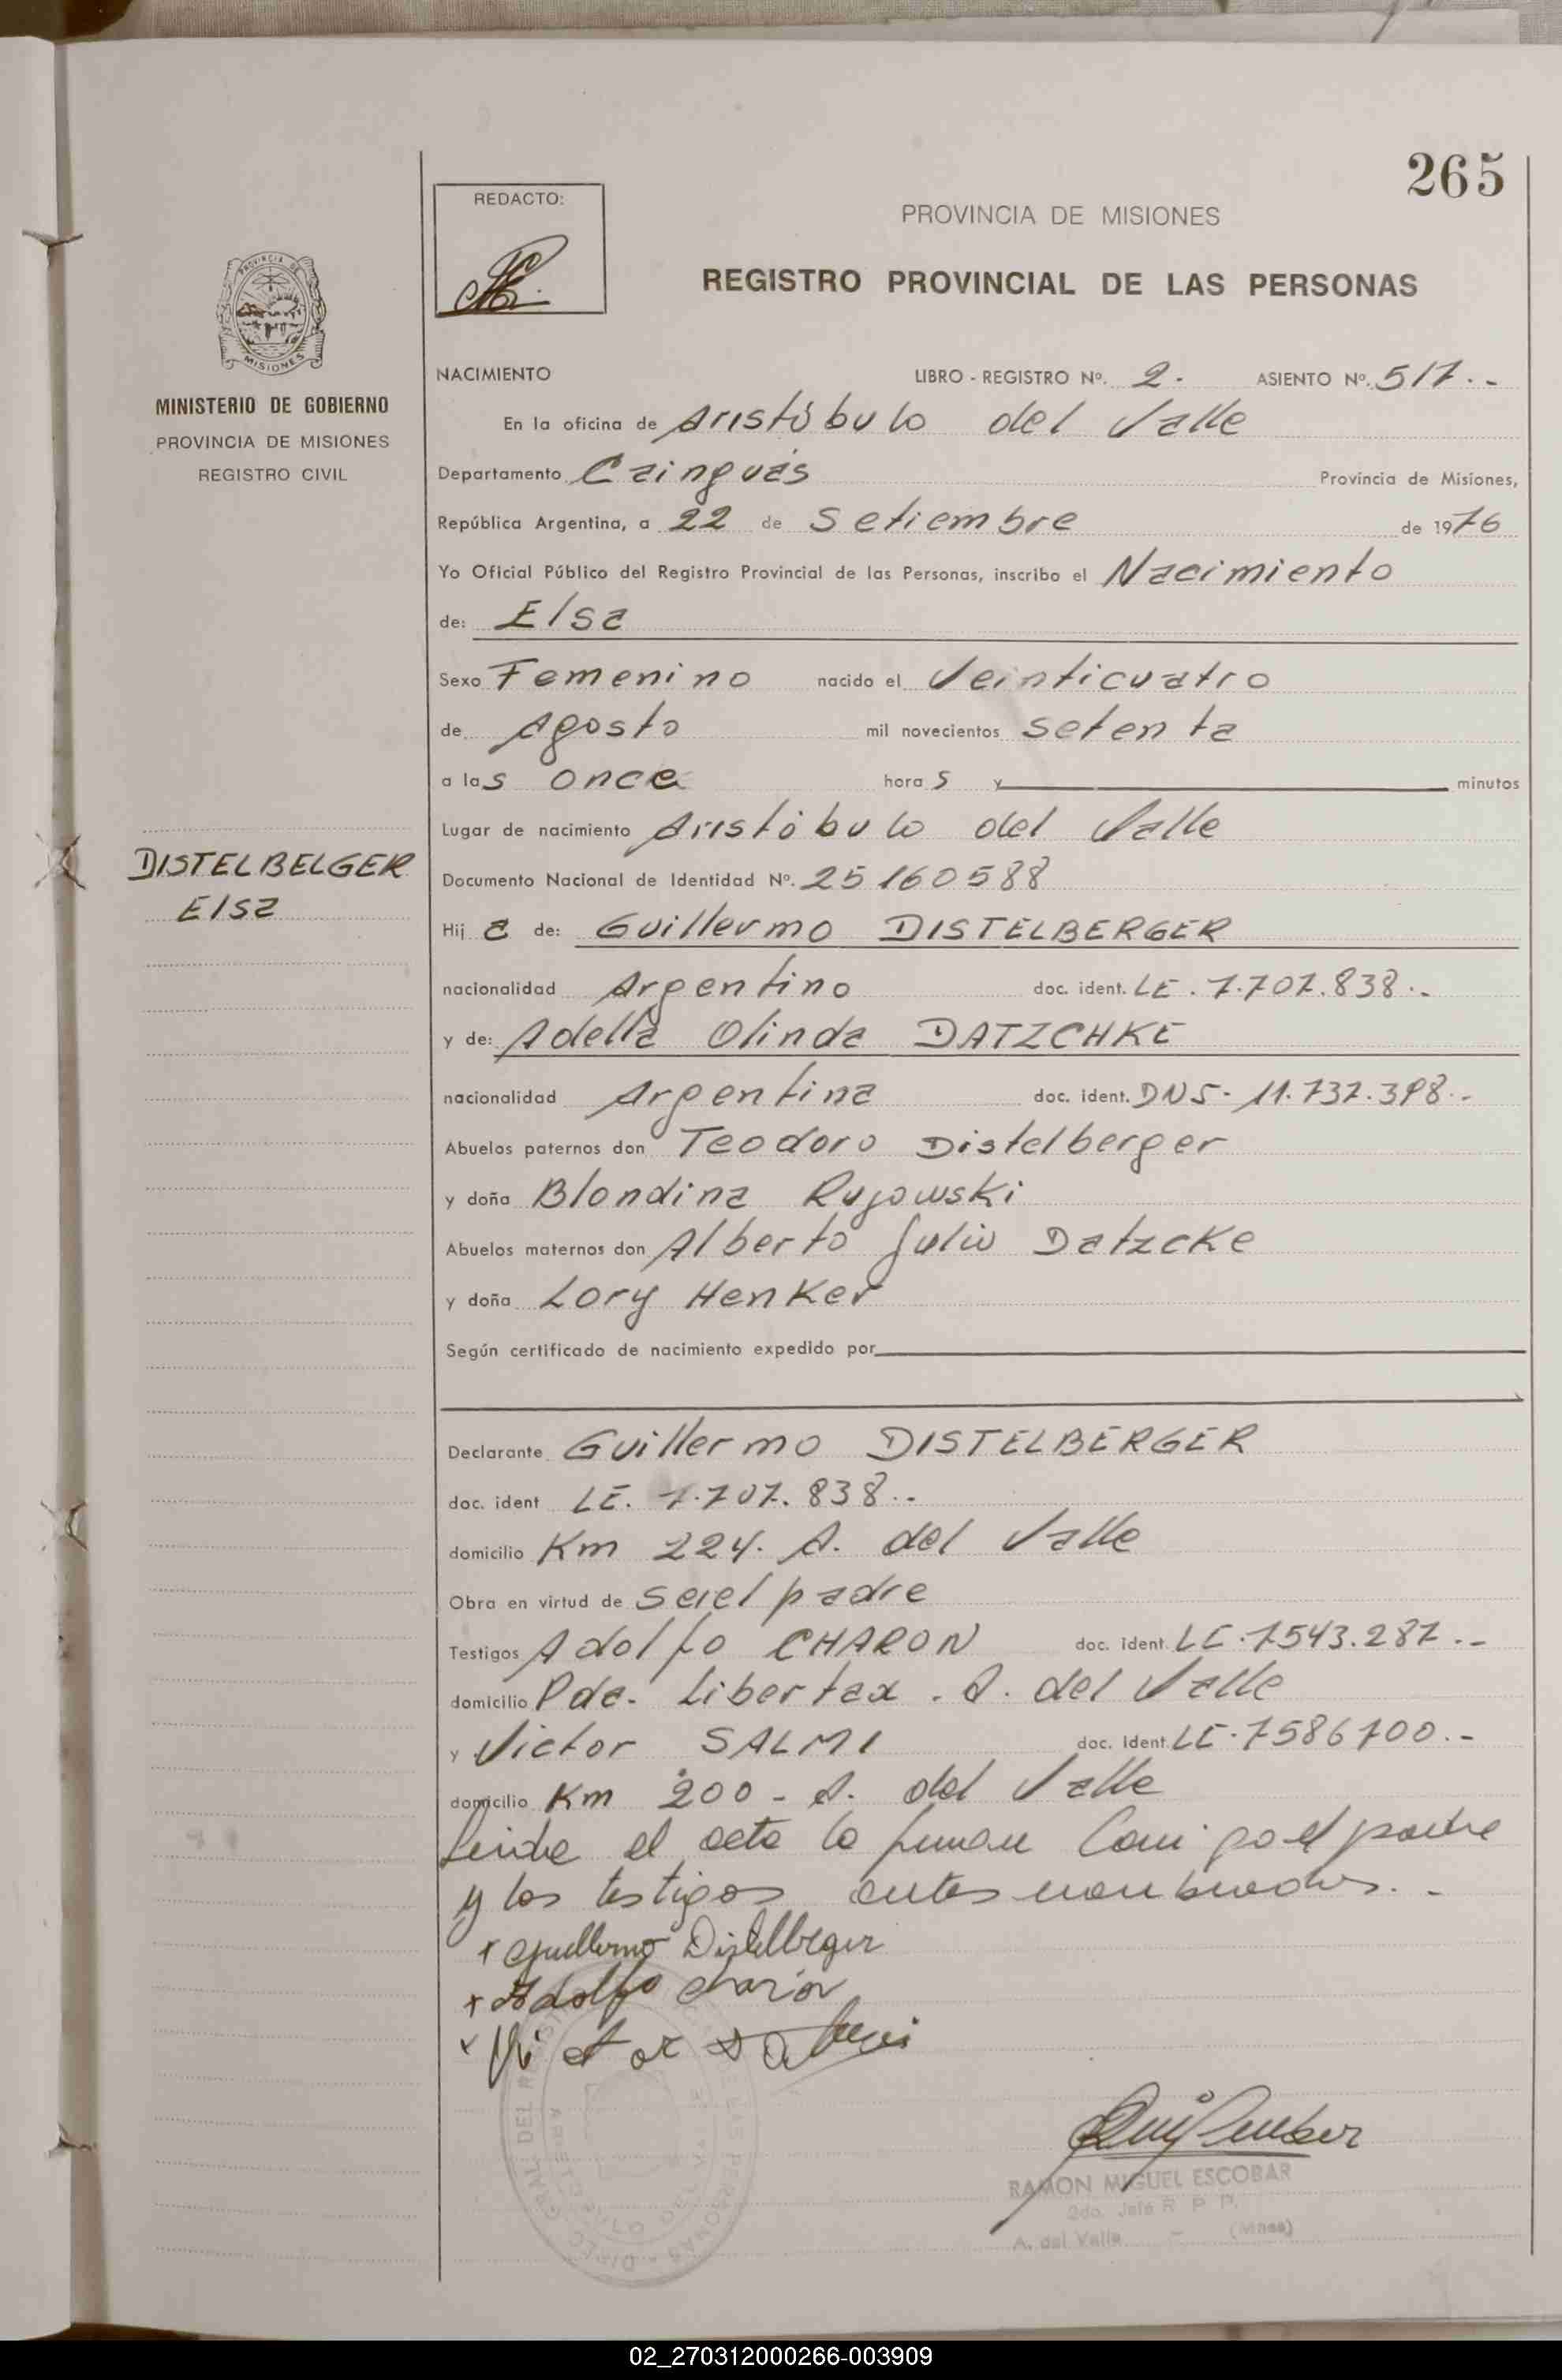 265
REDACTO:
PROVINCIA DE MISIONES
REGISTRO PROVINCIAL DE LAS PERSONAS
PROVINCIA DE
MISIONES
MINISTERIO DE GOBIERNO
PROVINCIA DE MISIONES
REGISTRO CIVIL
DISTELBELGER
Elsa
NACIMIENTO LIBRO - REGISTRO Nº. 2. ASIENTO Nº. 517.-
En la oficina de Aristóbulo del Valle
Departamento Cainguás Provincia de Misiones,
República Argentina, a 22 de Setiembre de 1976
Yo Oficial Público del Registro Provincial de las Personas, inscribo el Nacimiento
de: Elsa
Sexo Femenino nacido el Veinticuatro
de Agosto mil novecientos setenta
a las once horas y minutos
Lugar de nacimiento Aristóbulo del Valle
Documento Nacional de Identidad Nº. 25160588
Hija de: Guillermo DISTELBERGER
nacionalidad Argentino doc. ident. LE. 7.707.838..
y de: Adella Olinda DATZCHKE
nacionalidad Argentina doc. ident. DNS- 11.737.398..
Abuelos paternos don Teodoro Distelberger
y doña Blondina Rujowski
Abuelos maternos don Alberto Julio Datzcke
y doña Lory Henker
Según certificado de nacimiento expedido por
Declarante Guillermo DISTELBERGER
doc. ident LE. 7.707.838..
domicilio Km 224. A. del Valle
Obra en virtud de ser el padre
Testigos Adolfo CHARON doc. ident. LE.7543.287.-
domicilio Pda. Libertad. A. del Valle
y Victor SALMI doc. ident. LE.7586700.-
domicilio Km 200 - A. del Valle
el acta la firman el padre
y los testigos antes nombrados.-
x Guillermo Distelberger
x Adolfo Charon
x Victor Salmi
RAMON MIGUEL ESCOBAR
2do. Jefe R P P.
A. del Valle - (Mnes)
02_270312000266-003909